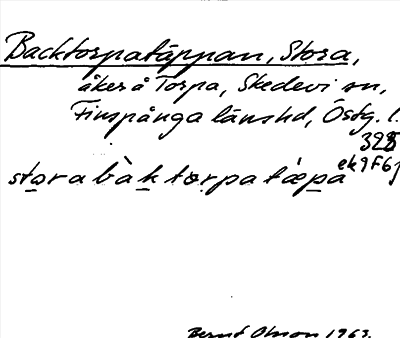 Backtorpatäppan, Stora,
åker å Torpa, Skedevi sn,
Finspånga länshd, Östg. l.
328
ek 9F6j
stora bàktorpatǽpa
Bernt Olsson 1963.